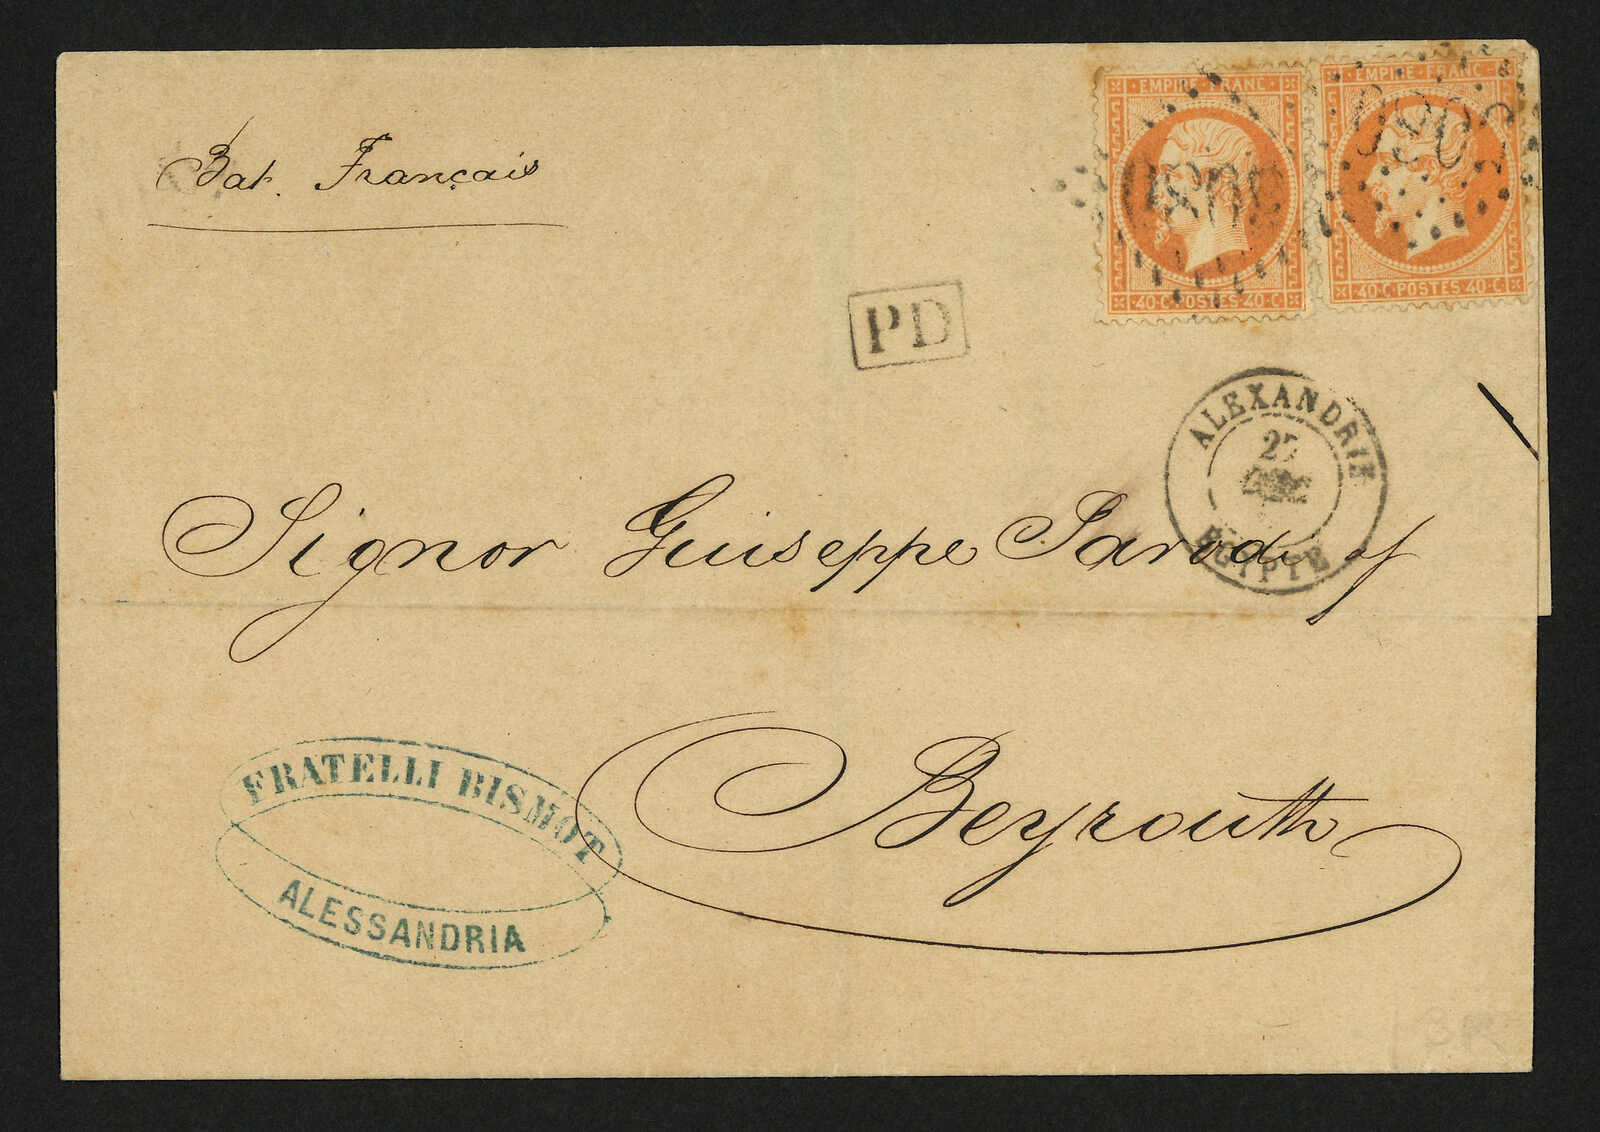 Bat. Français
EMPIRE FRANC
40 C POSTES 40 C
EMPIRE FRANC
40 C POSTES 40 C
PD
ALEXANDRIE
EGYPTE
Signor Giuseppe Parodi
Beyrouth
FRATELLI BISMOT
ALESSANDRIA